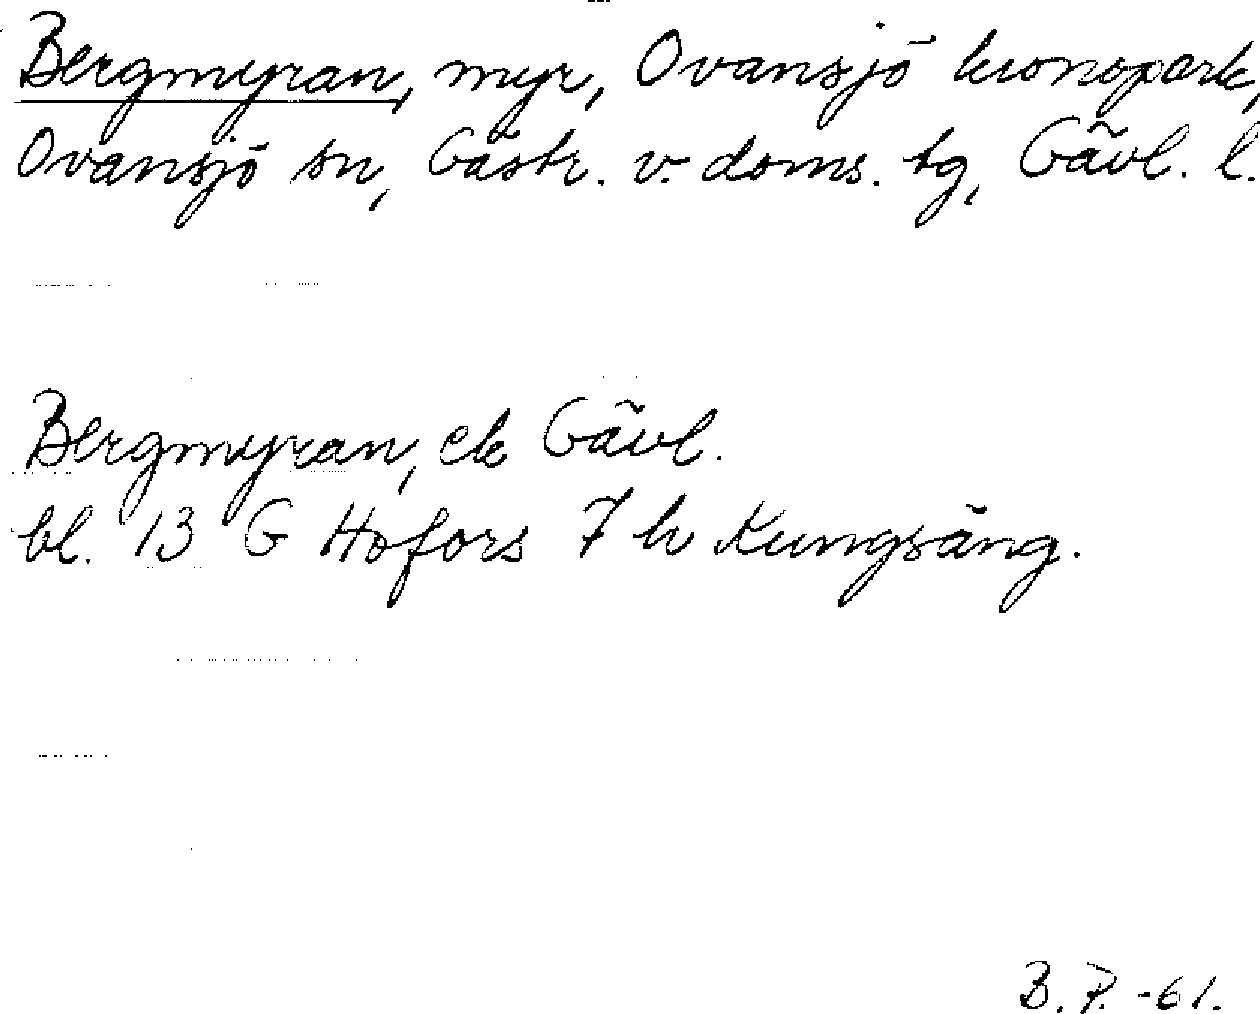 Bergmyran, myr, Ovansjö kronopark,
Ovansjö sn, Gästr. v. doms. tg, Gävl. l.
Bergmyran, ek Gävl.
bl. 13 G Hofors 7 h Kungsäng.
B. P. -61.